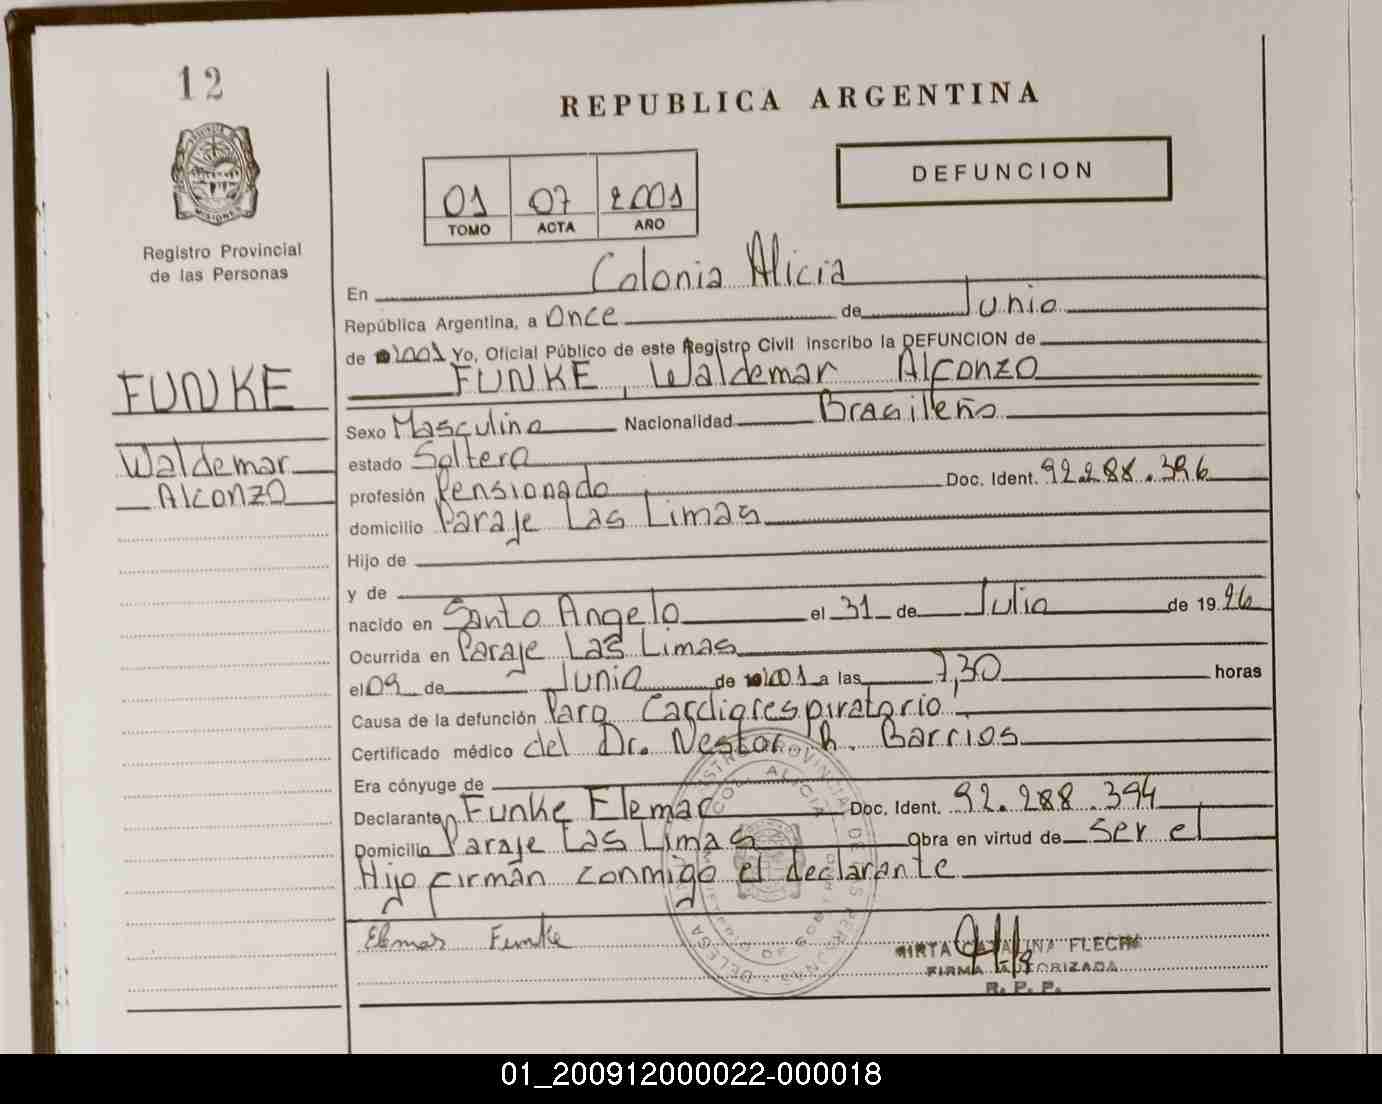 12
REPUBLICA ARGENTINA
DEFUNCION
01 07 2001
TOMO ACTA AÑO
MISIONES
Registro Provincial
de las Personas
En Colonia Alicia
República Argentina, a Once de Junio
de 2001 Yo, Oficial Público de este Registro Civil inscribo la DEFUNCION de
FUNKE, Waldemar Alfonzo
FUNKE
Waldemar
Alconzo
Sexo Masculino Nacionalidad Brasileño
estado Soltero
profesión Pensionado Doc. Ident. 92.288.396
domicilio Paraje Las Limas
Hijo de
y de
nacido en Santo Angelo el 31 de Julio de 1926
Ocurrida en Paraje Las Limas
el 09 de Junio de 2001 a las 7,30 horas
Causa de la defunción Paro Cardiorespiratorio
Certificado médico del Dr. Nestor R. Barrios
Era cónyuge de
Declarante Funke Elemar Doc. Ident. 92.288.394
Domicilio Paraje Las Limas Obra en virtud de Ser el
Hijo firmán conmigo el declarante
Elemar Funke
MIRTA CATALINA FLECHA
FIRMA AUTORIZADA
R. P. P.
01_200912000022-000018